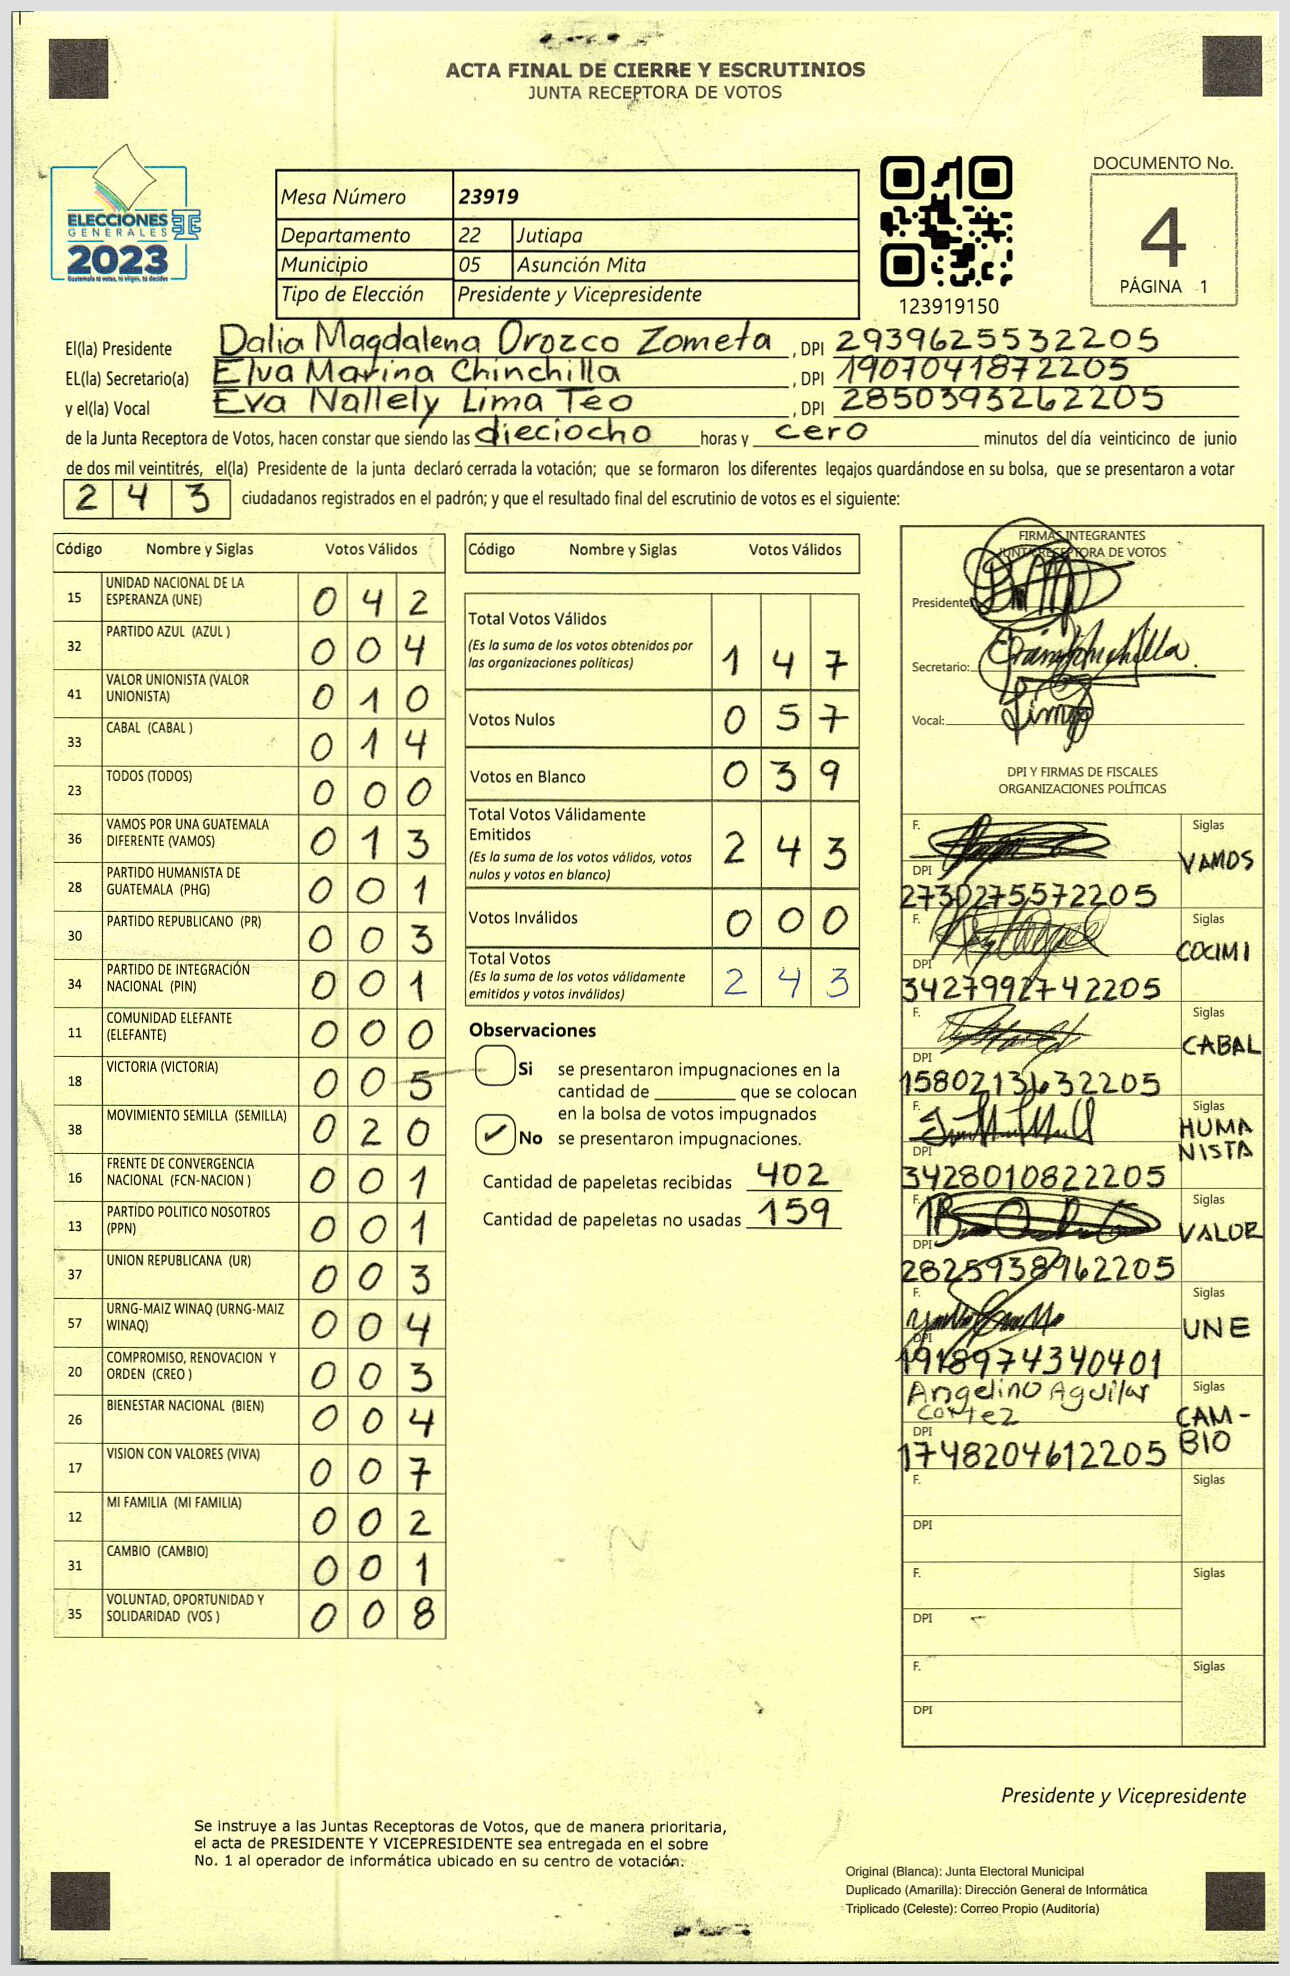 ACTA FINAL DE CIERRE Y ESCRUTINIOS
JUNTA RECEPTORA DE VOTOS
ELECCIONES
GENERALES
2023
Guatemala tú votas, tú eliges, tú decides
Mesa Número 23919
Departamento 22 Jutiapa
Municipio 05 Asunción Mita
Tipo de Elección Presidente y Vicepresidente
123919150
DOCUMENTO No.
4
PÁGINA 1
El(la) Presidente Dalia Magdalena Orozco Zometa , DPI 2939625532205
EL(la) Secretario(a) Elva Marina Chinchilla , DPI 1907041872205
y el(la) Vocal Eva Nallely Lima Teo , DPI 2850393262205
de la Junta Receptora de Votos, hacen constar que siendo las dieciocho horas y cero minutos del día veinticinco de junio
de dos mil veintitrés, el(la) Presidente de la junta declaró cerrada la votación; que se formaron los diferentes legajos guardándose en su bolsa, que se presentaron a votar
2 4 3 ciudadanos registrados en el padrón; y que el resultado final del escrutinio de votos es el siguiente:
Código Nombre y Siglas Votos Válidos
15 UNIDAD NACIONAL DE LA
ESPERANZA (UNE) 0 4 2
32 PARTIDO AZUL (AZUL ) 0 0 4
41 VALOR UNIONISTA (VALOR
UNIONISTA) 0 1 0
33 CABAL (CABAL ) 0 1 4
23 TODOS (TODOS) 0 0 0
36 VAMOS POR UNA GUATEMALA
DIFERENTE (VAMOS) 0 1 3
28 PARTIDO HUMANISTA DE
GUATEMALA (PHG) 0 0 1
30 PARTIDO REPUBLICANO (PR) 0 0 3
34 PARTIDO DE INTEGRACIÓN
NACIONAL (PIN) 0 0 1
11 COMUNIDAD ELEFANTE
(ELEFANTE) 0 0 0
18 VICTORIA (VICTORIA) 0 0 5
38 MOVIMIENTO SEMILLA (SEMILLA) 0 2 0
16 FRENTE DE CONVERGENCIA
NACIONAL (FCN-NACION ) 0 0 1
13 PARTIDO POLITICO NOSOTROS
(PPN) 0 0 1
37 UNION REPUBLICANA (UR) 0 0 3
57 URNG-MAIZ WINAQ (URNG-MAIZ
WINAQ) 0 0 4
20 COMPROMISO, RENOVACION Y
ORDEN (CREO ) 0 0 3
26 BIENESTAR NACIONAL (BIEN) 0 0 4
17 VISION CON VALORES (VIVA) 0 0 7
12 MI FAMILIA (MI FAMILIA) 0 0 2
31 CAMBIO (CAMBIO) 0 0 1
35 VOLUNTAD, OPORTUNIDAD Y
SOLIDARIDAD (VOS ) 0 0 8
Código Nombre y Siglas Votos Válidos
Total Votos Válidos
(Es la suma de los votos obtenidos por
las organizaciones políticas) 1 4 7
Votos Nulos 0 5 7
Votos en Blanco 0 3 9
Total Votos Válidamente
Emitidos
(Es la suma de los votos válidos, votos
nulos y votos en blanco) 2 4 3
Votos Inválidos 0 0 0
Total Votos
(Es la suma de los votos válidamente
emitidos y votos inválidos) 2 4 3
Observaciones
Si se presentaron impugnaciones en la
cantidad de ________ que se colocan
en la bolsa de votos impugnados
No se presentaron impugnaciones.
Cantidad de papeletas recibidas 402
Cantidad de papeletas no usadas 159
FIRMAS INTEGRANTES
JUNTA RECEPTORA DE VOTOS
Presidente:
Secretario:
Vocal:
DPI Y FIRMAS DE FISCALES
ORGANIZACIONES POLÍTICAS
F. Siglas
VAMOS
DPI
2730275572205
F. Siglas
COCIMI
DPI
3427992742205
F. Siglas
CABAL
DPI
1580213632205
F. Siglas
HUMA
NISTA
DPI
3428010822205
F. Siglas
VALOR
DPI
2825938962205
F. Siglas
UNE
DPI
1918974340401
Angelino Aguilar
Cortez
Siglas
CAM-
BIO
DPI
1748204612205
F. Siglas
DPI
F. Siglas
DPI
F. Siglas
DPI
Presidente y Vicepresidente
Se instruye a las Juntas Receptoras de Votos, que de manera prioritaria,
el acta de PRESIDENTE Y VICEPRESIDENTE sea entregada en el sobre
No. 1 al operador de informática ubicado en su centro de votación.
Original (Blanca): Junta Electoral Municipal
Duplicado (Amarilla): Dirección General de Informática
Triplicado (Celeste): Correo Propio (Auditoría)